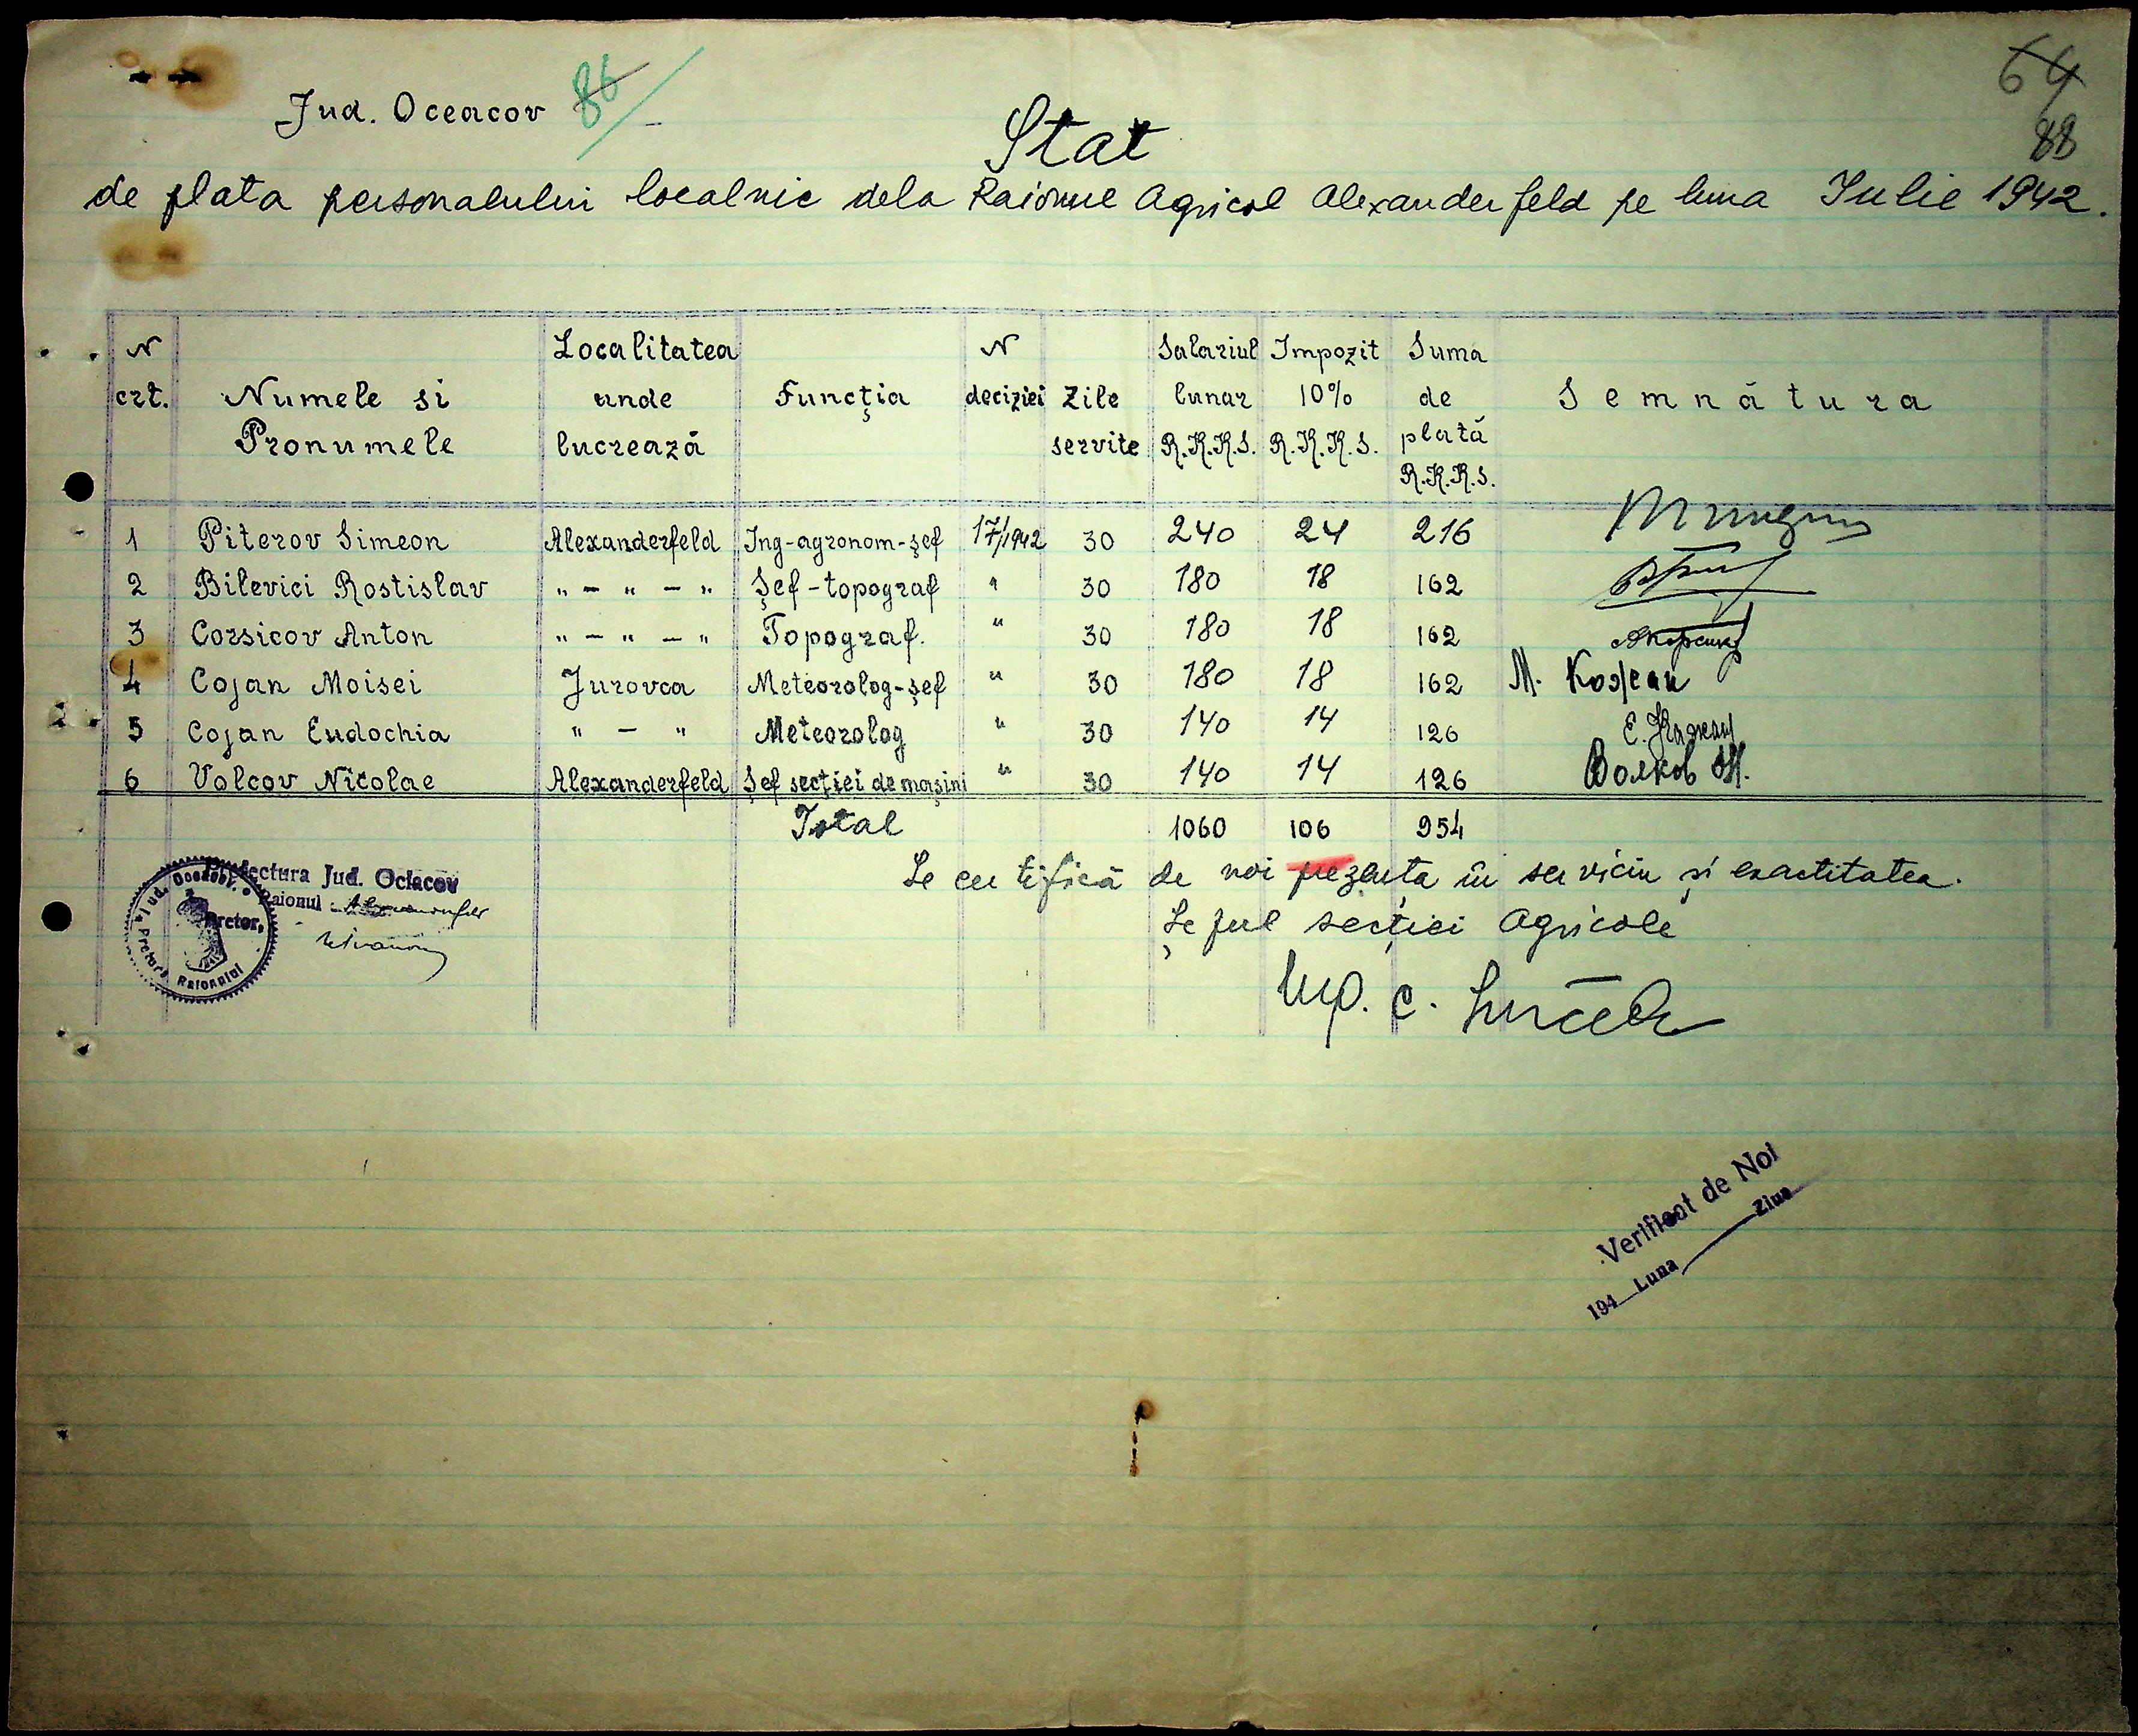 64
88
Jud. Oceacov 86
Stat
de plata personalului localnic dela Raionul Agricol Alexanderfeld pe luna Iulie 1942.
N crt. Numele si Pronumele Localitatea unde lucrează Funcţia N deciziei Zile servite Salariul lunar R.K.K.S. Impozit 10% R.K.K.S. Suma de plată R.K.K.S. Semnătura
1 Piterov Simeon Alexanderfeld Ing-agronom-şef 17/1942 30 240 24 216
2 Bilevici Rostislav " - " - " Şef-topograf " 30 180 18 162
3 Corsicov Anton " - " - " Topograf. " 30 180 18 162
4 Cojan Moisei Jurovca Meteorolog-şef " 30 180 18 162 М. Кожан
5 Cojan Eudochia " - " Meteorolog " 30 140 14 126 Е. Кожан
6 Volcov Nicolae Alexanderfeld Şef secţiei de maşini " 30 140 14 126 Волков Н.
Total 1060 106 954
Se certifică de noi prezenţa în serviciu şi exactitatea.
Şeful secţiei Agricole
Prefectura Jud. Oceacov
Raionul
Pretor,
Jud. Oceacov
Pretura Raionului
Verificat de Noi
194 Luna Ziua